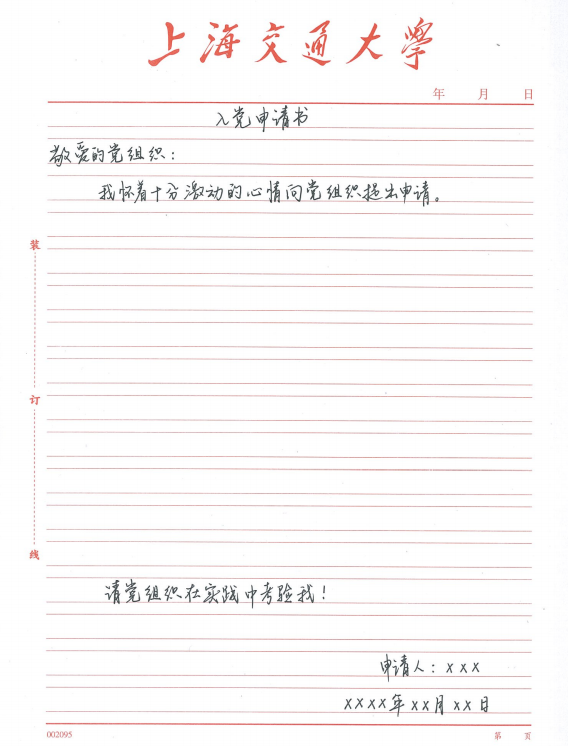 上海交通大學
年 月 日
入党申请书
敬爱的党组织：
我怀着十分激动的心情向党组织提出申请。
装
订
线
请党组织在实践中考验我！
申请人：xxx
xxxx年xx月xx日
002095
第 页